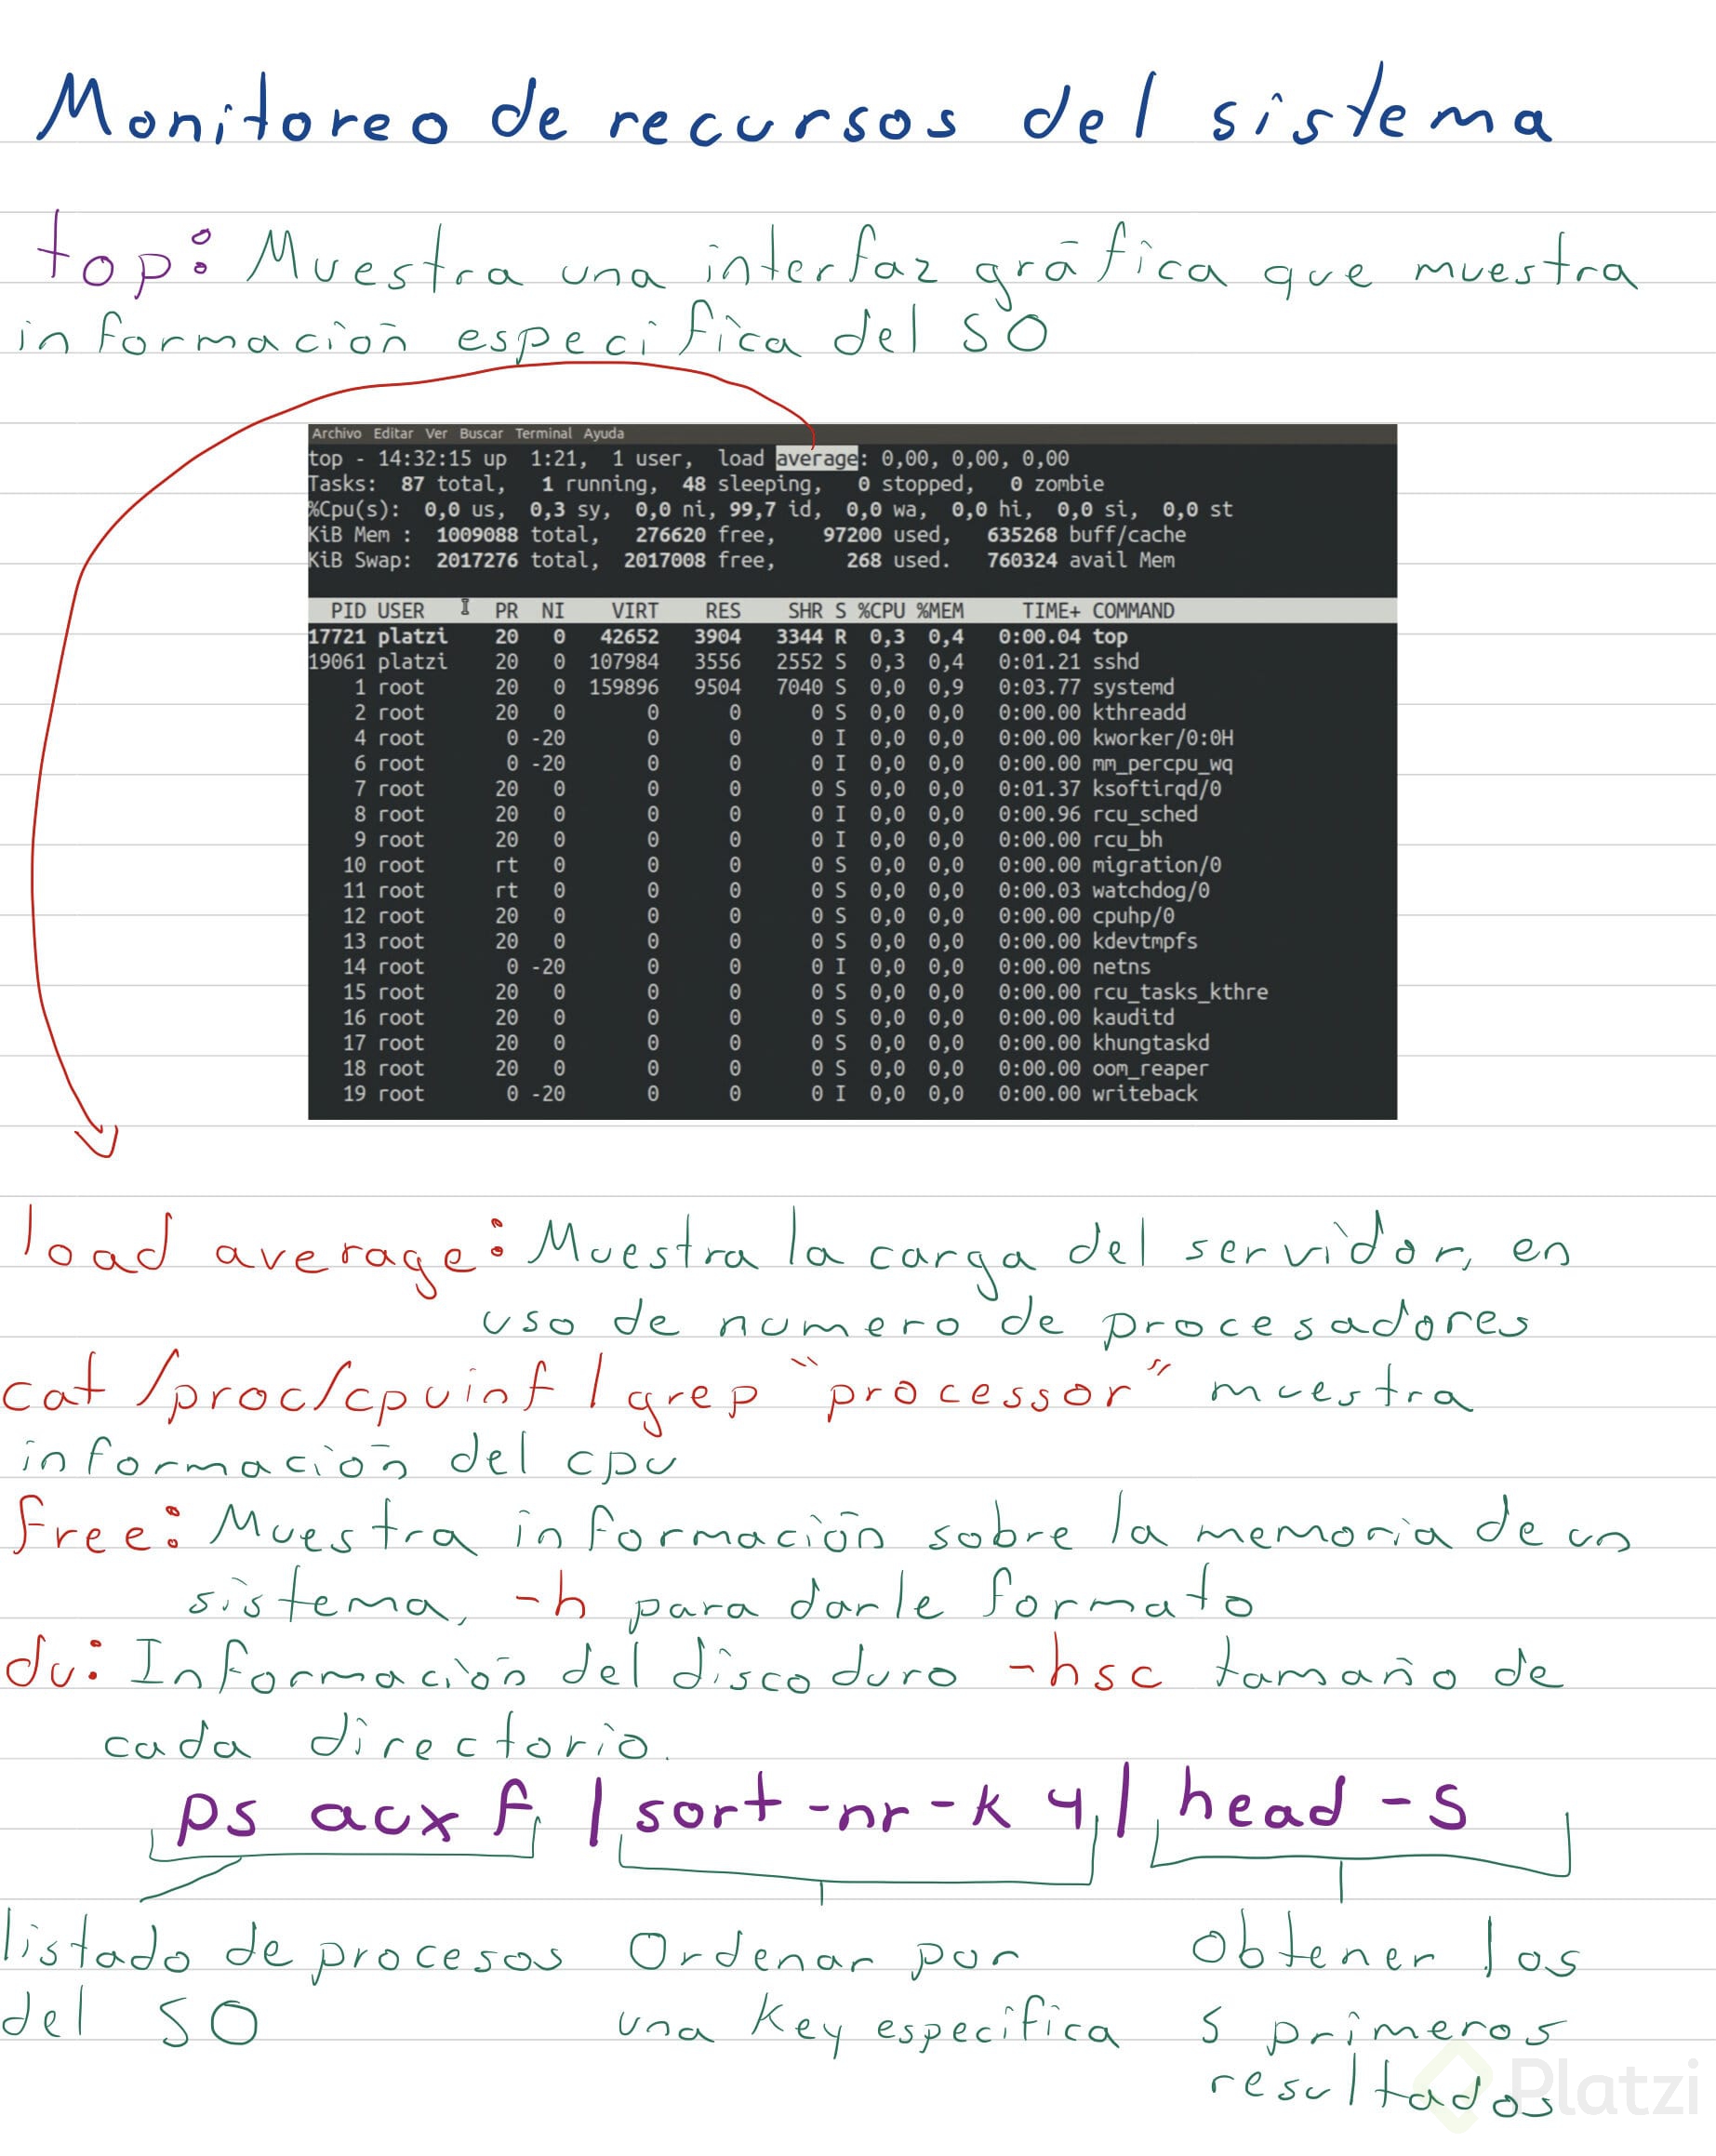 Monitoreo de recursos del sistema
top: Muestra una interfaz gráfica que muestra
información especifica del SO
Archivo Editar Ver Buscar Terminal Ayuda
top - 14:32:15 up  1:21,  1 user,  load average: 0,00, 0,00, 0,00
Tasks:  87 total,   1 running,  48 sleeping,   0 stopped,   0 zombie
%Cpu(s):  0,0 us,  0,3 sy,  0,0 ni, 99,7 id,  0,0 wa,  0,0 hi,  0,0 si,  0,0 st
KiB Mem :  1009088 total,   276620 free,    97200 used,   635268 buff/cache
KiB Swap:  2017276 total,  2017008 free,      268 used.   760324 avail Mem
PID USER PR NI VIRT RES SHR S %CPU %MEM TIME+ COMMAND
17721 platzi 20 0 42652 3904 3344 R 0,3 0,4 0:00.04 top
19061 platzi 20 0 107984 3556 2552 S 0,3 0,4 0:01.21 sshd
1 root 20 0 159896 9504 7040 S 0,0 0,9 0:03.77 systemd
2 root 20 0 0 0 0 S 0,0 0,0 0:00.00 kthreadd
4 root 0 -20 0 0 0 I 0,0 0,0 0:00.00 kworker/0:0H
6 root 0 -20 0 0 0 I 0,0 0,0 0:00.00 mm_percpu_wq
7 root 20 0 0 0 0 S 0,0 0,0 0:01.37 ksoftirqd/0
8 root 20 0 0 0 0 I 0,0 0,0 0:00.96 rcu_sched
9 root 20 0 0 0 0 I 0,0 0,0 0:00.00 rcu_bh
10 root rt 0 0 0 0 S 0,0 0,0 0:00.00 migration/0
11 root rt 0 0 0 0 S 0,0 0,0 0:00.03 watchdog/0
12 root 20 0 0 0 0 S 0,0 0,0 0:00.00 cpuhp/0
13 root 20 0 0 0 0 S 0,0 0,0 0:00.00 kdevtmpfs
14 root 0 -20 0 0 0 I 0,0 0,0 0:00.00 netns
15 root 20 0 0 0 0 S 0,0 0,0 0:00.00 rcu_tasks_kthre
16 root 20 0 0 0 0 S 0,0 0,0 0:00.00 kauditd
17 root 20 0 0 0 0 S 0,0 0,0 0:00.00 khungtaskd
18 root 20 0 0 0 0 S 0,0 0,0 0:00.00 oom_reaper
19 root 0 -20 0 0 0 I 0,0 0,0 0:00.00 writeback
load average: Muestra la carga del servidor, en
uso de numero de procesadores
cat /proc/cpuinf | grep "processor" muestra
información del cpu
free: Muestra información sobre la memoria de un
sistema, -h para darle formato
du: Información del disco duro -hsc tamaño de
cada directorio.
ps auxf | sort -nr -k 4 | head -5
listado de procesos Ordenar por Obtener los
del SO una Key especifica 5 primeros
resultados
Platzi